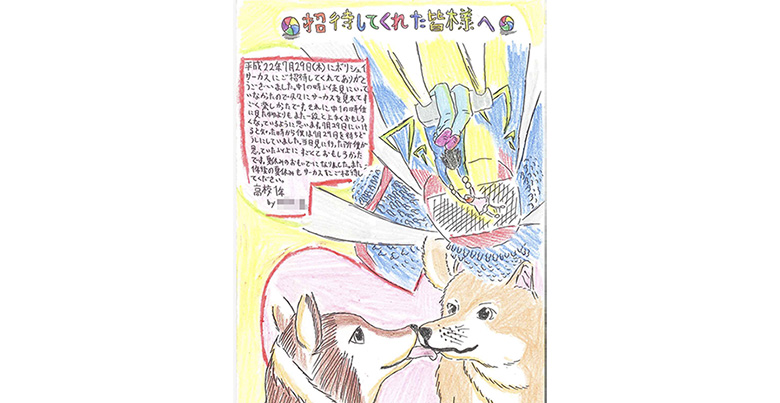 招待してくれた皆様へ
平成22年7月29日(木)にボリショイ
サーカスにご招待してくれてありがと
うございました。中1の時以来見にいって
いなかたので久々にサーカスを見れてす
ごく楽しかたです。それに中1の時位
に見た時よりもまた一段と上手くおもしろ
くなっているように思います。7月29日にいけ
ると知った時から僕は7月29日を待ちど
うしにしていました。当日見に行った所僕が
思っていたよりよにすごくておもしろかた
です。夏休みのおもいでになりました。また
休みもサーカスをにご招待し
てください。
高校1年
by